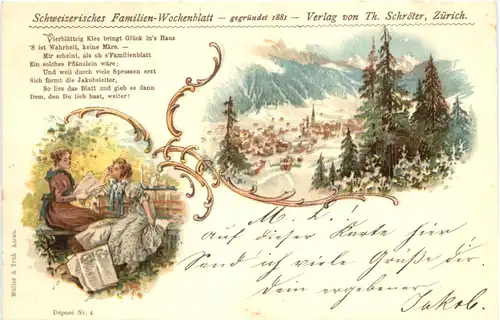 Schweizerisches Familien-Wochenblatt — gegründet 1881 — Verlag von Th. Schröter, Zürich.
Vierblättrig Klee bringt Glück in's Haus
'S ist Wahrheit, keine Märe. —
Mir scheint, als ob s'Familienblatt
Ein solches Pflänzlein wäre;
Und weil durch viele Sprossen erst
Sich formt die Jakobsleiter,
So lies das Blatt und gieb es dann
Dem, den Du lieb hast, weiter!
M. L!
Auf dieser Karte hier,
Send ich viele Grüße dir.
Dein ergebener
Jakob.
Müller & Trüb Aarau.
Déposé Nr. 4